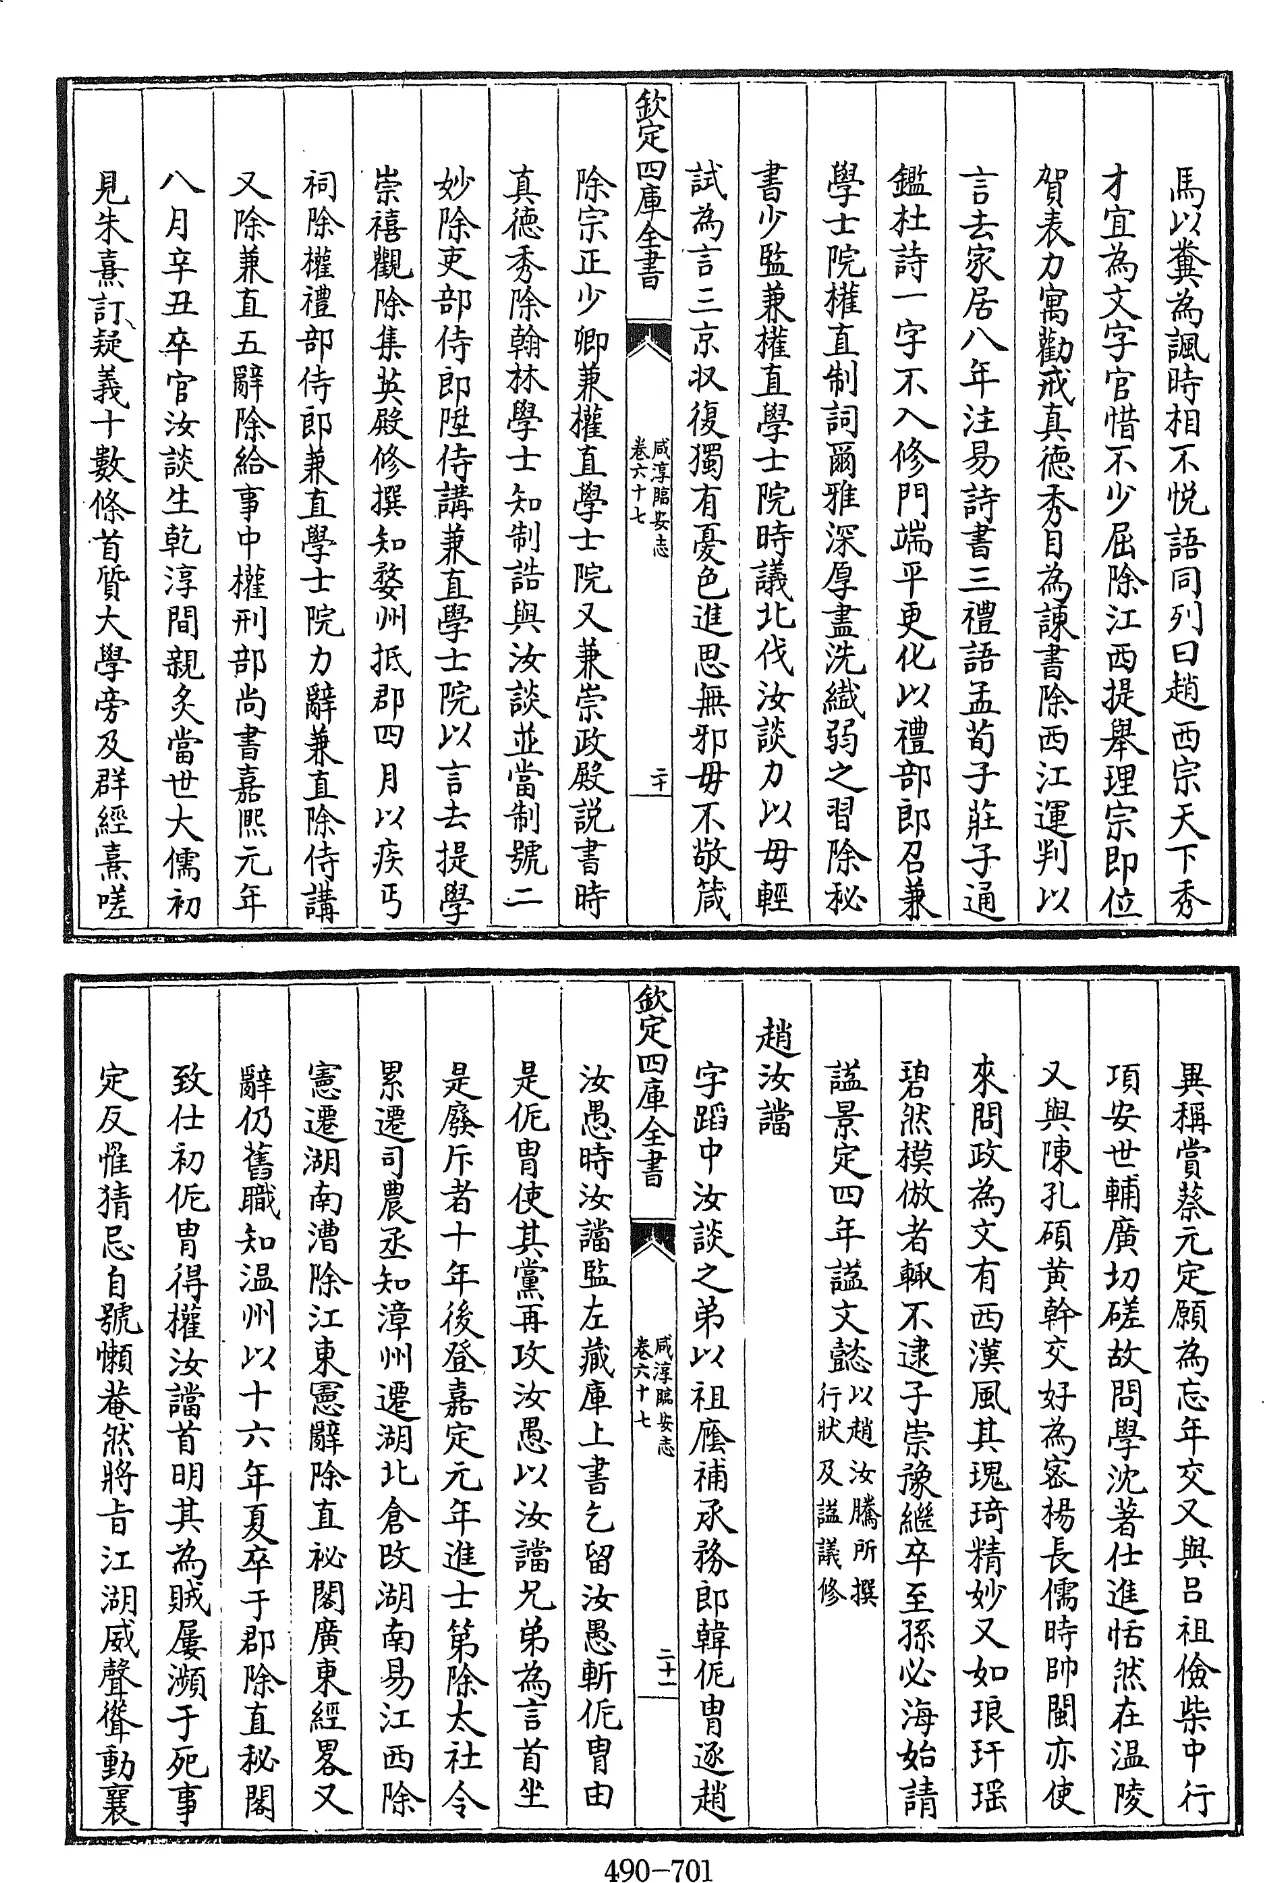 馬以糞為諷時相不悅語同列曰趙西宗天下秀
才宜為文字官惜不少屈除江西提舉理宗即位
賀表力寓勸戒真德秀目為諫書除西江運判以
言去家居八年注易詩書三禮語孟荀子莊子通
鑑杜詩一字不入修門端平更化以禮部郎召兼
學士院權直制詞爾雅深厚盡洗纎弱之習除秘
書少監兼權直學士院時議北伐汝談力以毋輕
試為言三京収復獨有憂色進思無邪毋不敬箴
欽定四庫全書
咸淳臨安志
卷六十七
二十
除宗正少卿兼權直學士院又兼崇政殿説書時
真德秀除翰林學士知制誥與汝談並當制號二
妙除吏部侍郎陞侍講兼直學士院以言去提學
崇禧觀除集英殿修撰知婺州抵郡四月以疾丐
祠除權禮部侍郎兼直學士院力辭兼直除侍講
又除兼直五辭除給事中權刑部尚書嘉熙元年
八月辛丑卒官汝談生乾淳間親炙當世大儒初
見朱熹訂疑義十數條首質大學旁及群經熹嗟
異稱賞蔡元定願為忘年交又與呂祖儉柴中行
項安世輔廣切磋故問學沈著仕進恬然在温陵
又與陳孔碩黃幹交好為宻楊長儒時帥閩亦使
來問政為文有西漢風其瑰琦精妙又如琅玕瑶
碧然模倣者輙不逮子崇豫繼卒至孫必海始請
謚景定四年謚文懿以趙汝騰所撰
行狀及謚議修
趙汝譡
字蹈中汝談之弟以祖廕補承務郎韓侂胄逐趙
欽定四庫全書
咸淳臨安志
卷六十七
二十一
汝愚時汝譡監左藏庫上書乞留汝愚斬侂胄由
是侂胄使其黨再攻汝愚以汝譡兄弟為言首坐
是廢斥者十年後登嘉定元年進士第除太社令
累遷司農丞知漳州遷湖北倉改湖南易江西除
憲遷湖南漕除江東憲辭除直祕閣廣東經畧又
辭仍舊職知温州以十六年夏卒于郡除直秘閣
致仕初侂胄得權汝譡首明其為賊屢瀕于死事
定反惟猜忌自號懶菴然將旨江湖威聲聳動襄
490-701